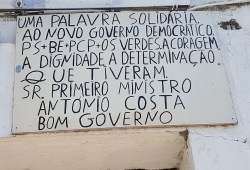 UMA PALAVRA SOLIDÁRIA.
AO NOVO GOVERNO DEMOCRÁTICO.
PS+BE+PCP+OS VERDES.A CORAGEM.
A DIGNIDADE A DETERMINAÇÃO
QUE TIVERAM.
SR. PRIMEIRO MINISTRO
ANTONIO COSTA
BOM GOVERNO